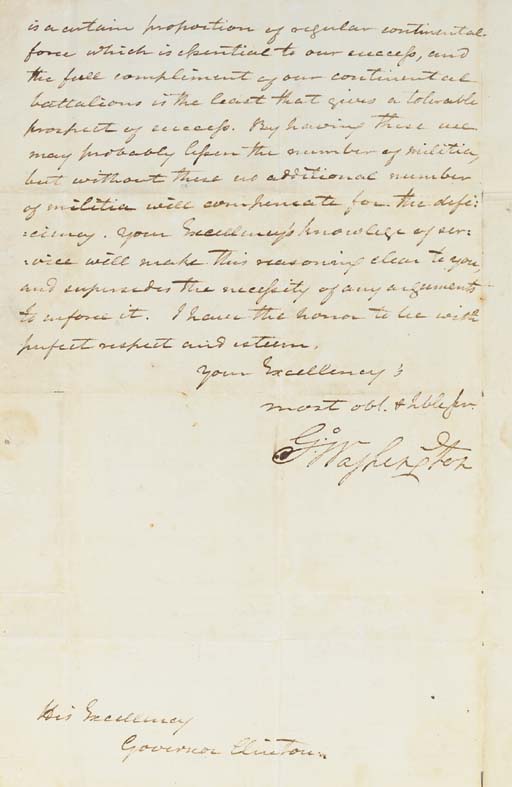 is a certain proportion of regular continental
force which is essential to our success, and
the full compliment of our continental
battalions is the least that gives a tolerable
prospect of success. By having these we
may probably lessen the number of militia,
but without these no additional number
of militia will compensate for the defi:
:ciency. Your Excellency's knowlege of ser:
:vice will make this reasoning clear to you,
and supersedes the necessity of any arguments
to inforce it. I have the honor to be with
perfect respect and esteem.
Your Excellency's
most obt. & hble Ser.
Go: Washington
His Excellency
Governor Clinton